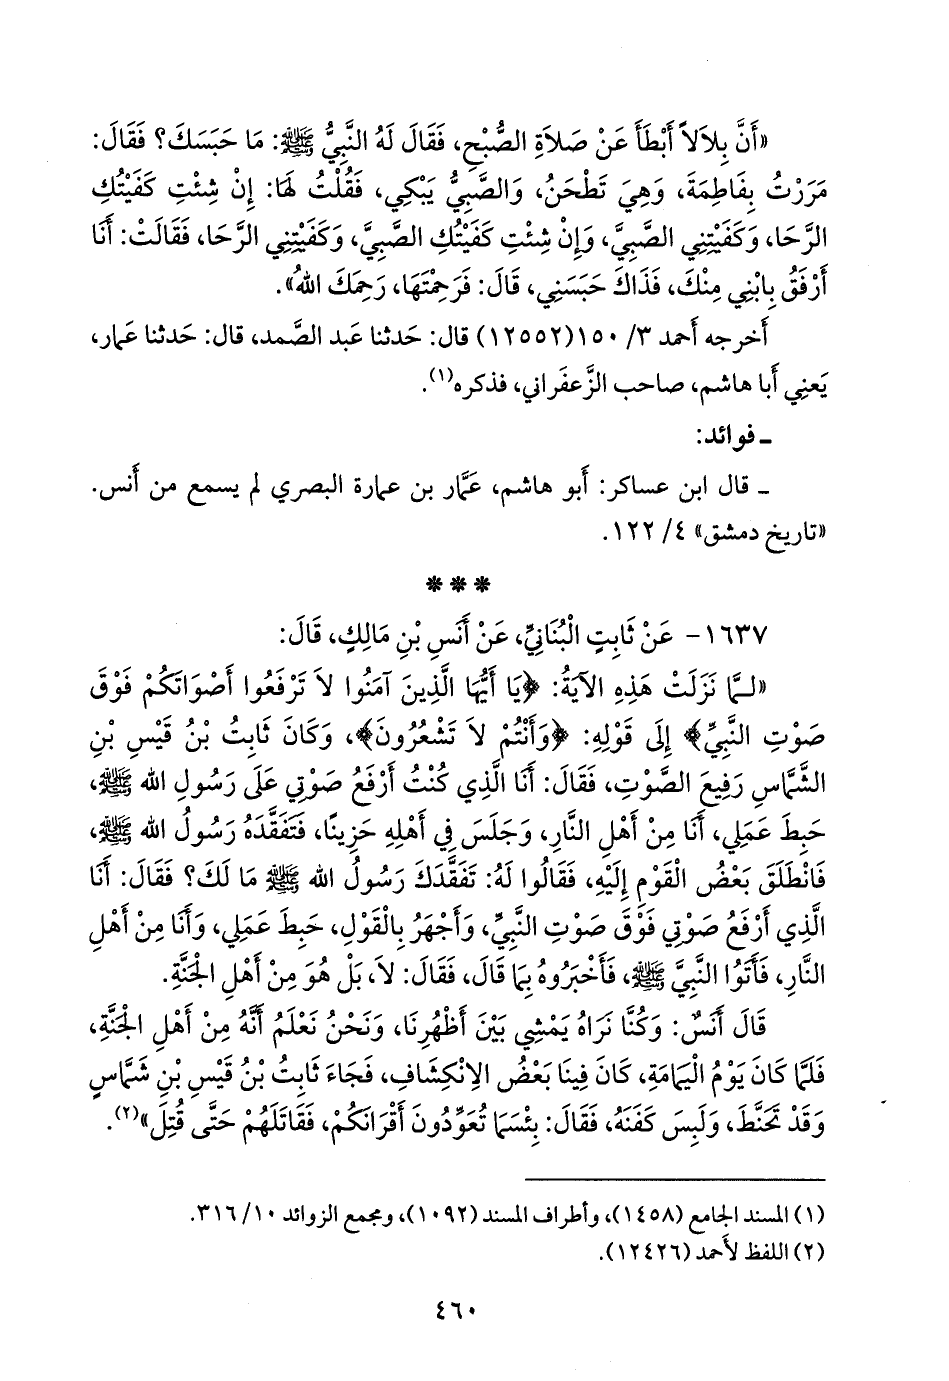 «أَنَّ بِلاَلاً أَبْطَأَ عَنْ صَلاَةِ الصُّبْحِ، فَقَالَ لَهُ النَّبِيُّ ﷺ: مَا حَبَسَكَ؟ فَقَالَ:
مَرَرْتُ بِفَاطِمَةَ، وَهِيَ تَطْحَنُ، وَالصَّبِيُّ يَبْكِي، فَقُلْتُ لَهَا: إِنْ شِئْتِ كَفَيْتُكِ
الرَّحَا، وَكَفَيْتِنِي الصَّبِيَّ، وَإِنْ شِئْتِ كَفَيْتُكِ الصَّبِيَّ، وَكَفَيْتِنِي الرَّحَا، فَقَالَتْ: أَنَا
أَرْفَقُ بِابْنِي مِنْكَ، فَذَاكَ حَبَسَنِي، قَالَ: فَرَحِمْتَهَا، رَحِمَكَ اللهُ».
أَخرجه أحمد ٣/ ١٥٠(١٢٥٥٢) قال: حَدثنا عَبد الصَّمد، قال: حَدثنا عمار،
يَعنِي أَبا هاشم، صاحب الزَّعفَراني، فذكره(١).
ـ فوائد:
ـ قال ابن عساكر: أَبو هاشم، عَمَّار بن عمارة البصري لم يسمع من أَنس.
«تاريخ دمشق» ٤/ ١٢٢.
***
١٦٣٧- عَنْ ثَابِتٍ الْبُنَانِيِّ، عَنْ أَنَسِ بْنِ مَالِكٍ، قَالَ:
«لَـمَّا نَزَلَتْ هَذِهِ الآيَةُ: ﴿يَا أَيُّهَا الَّذِينَ آمَنُوا لاَ تَرْفَعُوا أَصْوَاتَكُمْ فَوْقَ
صَوْتِ النَّبِيِّ﴾ إِلَى قَوْلِهِ: ﴿وَأَنْتُمْ لاَ تَشْعُرُونَ﴾، وَكَانَ ثَابِتُ بْنُ قَيْسِ بْنِ
الشَّمَّاسِ رَفِيعَ الصَّوْتِ، فَقَالَ: أَنَا الَّذِي كُنْتُ أَرْفَعُ صَوْتِي عَلَى رَسُولِ الله ﷺ،
حَبِطَ عَمَلِي، أَنَا مِنْ أَهْلِ النَّارِ، وَجَلَسَ فِي أَهْلِهِ حَزِينًا، فَتَفَقَّدَهُ رَسُولُ الله ﷺ،
فَانْطَلَقَ بَعْضُ الْقَوْمِ إِلَيْهِ، فَقَالُوا لَهُ: تَفَقَّدَكَ رَسُولُ الله ﷺ مَا لَكَ؟ فَقَالَ: أَنَا
الَّذِي أَرْفَعُ صَوْتِي فَوْقَ صَوْتِ النَّبِيِّ، وَأَجْهَرُ بِالْقَوْلِ، حَبِطَ عَمَلِي، وَأَنَا مِنْ أَهْلِ
النَّارِ، فَأَتَوُا النَّبِيَّ ﷺ، فَأَخْبَرُوهُ بِمَا قَالَ، فَقَالَ: لاَ، بَلْ هُوَ مِنْ أَهْلِ الْجَنَّةِ.
قَالَ أَنَسٌ: وَكُنَّا نَرَاهُ يَمْشِي بَيْنَ أَظْهُرِنَا، وَنَحْنُ نَعْلَمُ أَنَّهُ مِنْ أَهْلِ الْجَنَّةِ،
فَلَمَّا كَانَ يَوْمُ الْيَمَامَةِ، كَانَ فِينَا بَعْضُ الاِنْكِشَافِ، فَجَاءَ ثَابِتُ بْنُ قَيْسِ بْنِ شَمَّاسٍ
وَقَدْ تَحَنَّطَ، وَلَبِسَ كَفَنَهُ، فَقَالَ: بِئْسَمَا تُعَوِّدُونَ أَقْرَانَكُمْ، فَقَاتَلَهُمْ حَتَّى قُتِلَ»(٢).
(١) المسند الجامع (١٤٥٨)، وأطراف المسند (١٠٩٢)، ومجمع الزوائد ١٠/ ٣١٦.
(٢) اللفظ لأَحمد (١٢٤٢٦).
٤٦٠